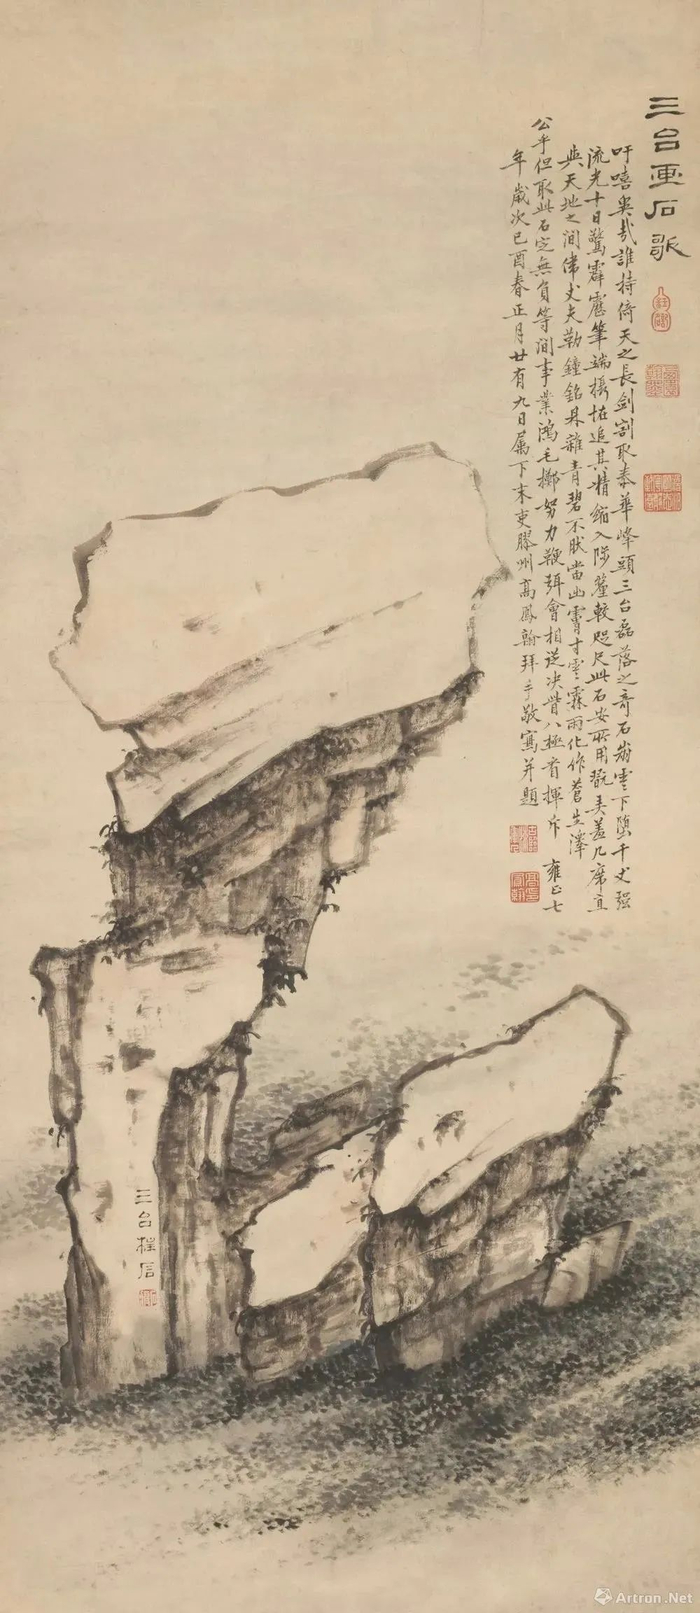 三台画石歌
吁嘻异哉誰持倚天之長劍割取泰華峰頭三台磊落之奇石崩雲下墮千丈強
流光十日驚霹靂筆端攝怪追其精縮入隃麋較咫尺此石安所用翫弄蓋几席宜
與天地之間偉丈夫勒鐘銘鼎雜青碧不肰當出膚寸雲霖雨化作蒼生澤
公乎但取此石定無負等閒事業鴻毛擲努力鞭弭會相從決眥八極看揮斥 雍正七
年歲次己酉春正月廿有九日屬下末吏膠州高鳳翰拜手敬寫并題
三台程石
Artron.Net